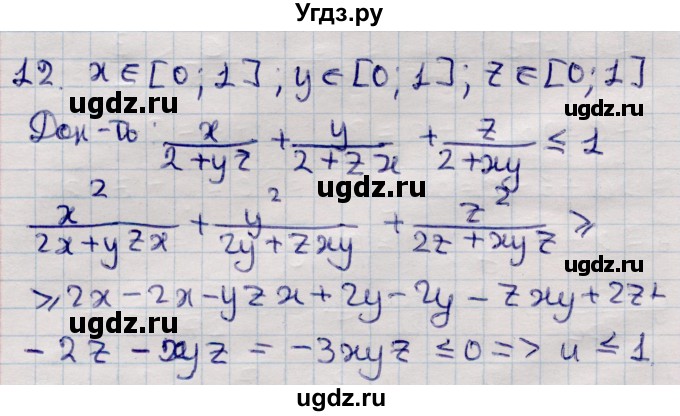 Угдз.ру
12. x ∈ [0; 1]; y ∈ [0; 1]; z ∈ [0; 1]
ugdz.ru ugdz.ru
Док-ть: x/(2+yz) + y/(2+zx) + z/(2+xy) ≤ 1
ugdz.ru
x²/(2x+yzx) + y²/(2y+zxy) + z²/(2z+xyz) ≥
ugdz.ru ugdz.ru
≥ 2x - 2x - yzx + 2y - 2y - zxy + 2z +
ugdz.ru
- 2z - xyz = -3xyz ≤ 0 => u ≤ 1.
ugdz.ru ugdz.ru